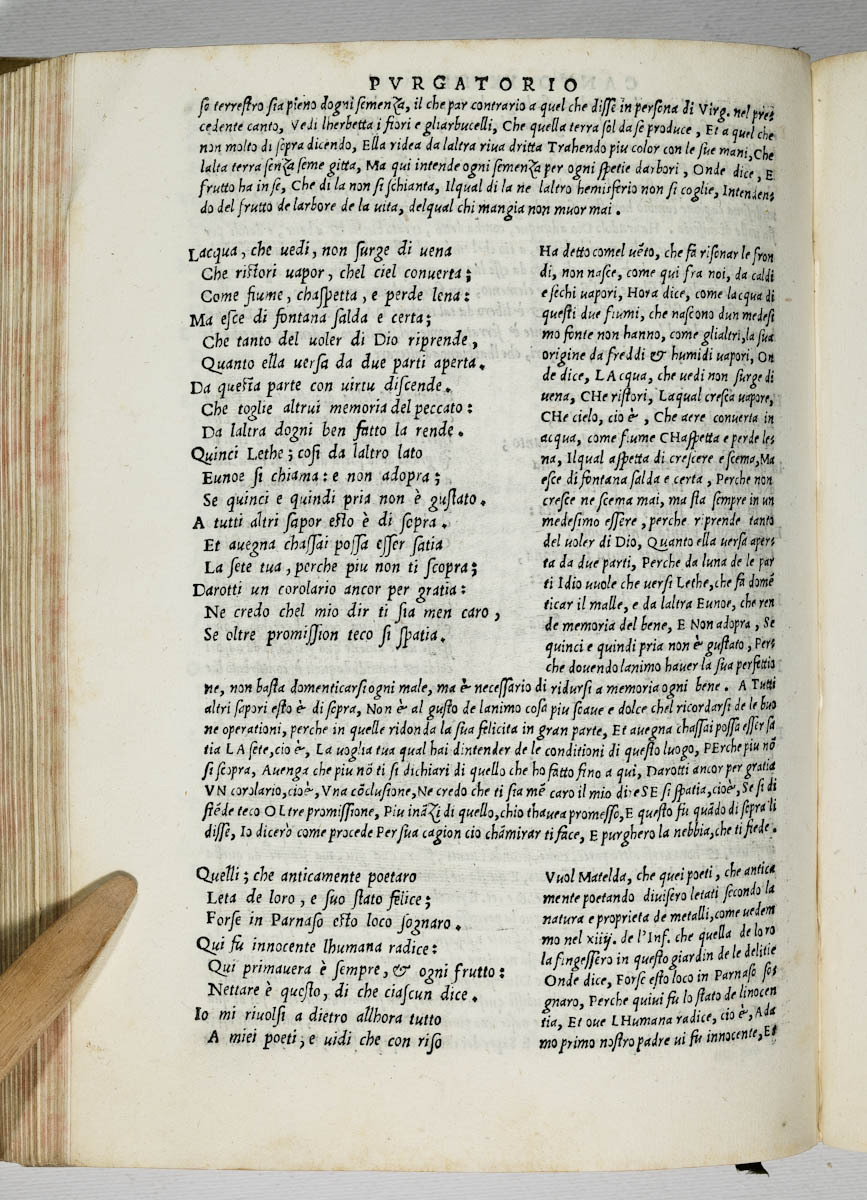 PVRGATORIO
so terrestro sia pieno dogni semenza, il che par contrario a quel che disse in persona di Virg. nel pre
cedente canto, Vedi lherbetta i fiori e gliarbucelli, Che quella terra sol da se produce, Et a quel che
non molto di sopra dicendo, Ella ridea da laltra riua dritta Trahendo piu color con le sue mani, Che
lalta terra senza seme gitta, Ma qui intende ogni semenza per ogni spetie darbori, Onde dice, E
frutto ha in se, Che di la non si schianta, Ilqual di la ne laltro hemisferio non si coglie, Intenden
do del frutto de larbore de la uita, delqual chi mangia non muor mai.
Lacqua, che uedi, non surge di uena
Che ristori uapor, chel ciel conuerta;
Come fiume, chaspetta, e perde lena:
Ma esce di fontana salda e certa;
Che tanto del uoler di Dio riprende,
Quanto ella uersa da due parti aperta.
Da questa parte con uirtu discende.
Che toglie altrui memoria del peccato:
Da laltra dogni ben fatto la rende.
Quinci Lethe; cosi da laltro lato
Eunoe si chiama: e non adopra;
Se quinci e quindi pria non è gustato.
A tutti altri sapor esto è di sopra.
Et auegna chassai possa esser satia
La sete tua, perche piu non ti scopra;
Darotti un corolario ancor per gratia:
Ne credo chel mio dir ti sia men caro,
Se oltre promission teco si spatia.
Ha detto comel uẽto, che fa risonar le fron
di, non nasce, come qui fra noi, da caldi
e sechi uapori, Hora dice, come lacqua di
questi due fiumi, che nascono dun medesi
mo fonte non hanno, come glialtri, la sua
origine da freddi & humidi uapori, On
de dice, LAcqua, che uedi non surge di
uena, CHe ristori, Laqual cresca uapore,
CHe cielo, cio è, Che aere conuerta in
acqua, come fiume CHaspetta e perde le
na, Ilqual aspetta di crescere e scema, Ma
esce di fontana salda e certa, Perche non
cresce ne scema mai, ma sta sempre in un
medesimo essere, perche riprende tanto
del uoler di Dio, Quanto ella uersa aper
ta da due parti, Perche da luna de le par
ti Idio uuole che uersi Lethe, che fa domẽ
ticar il malle, e da laltra Eunoe, che ren
de memoria del bene, E Non adopra, Se
quinci e quindi pria non è gustato, Per
che douendo lanimo hauer la sua perfettio
ne, non basta domenticarsi ogni male, ma è necessario di ridursi a memoria ogni bene. A Tutti
altri sapori esto è di sopra, Non è al gusto de lanimo cosa piu soaue e dolce chel ricordarsi de le buo
ne operationi, perche in quelle ridonda la sua felicita in gran parte, Et auegna chassai possa esser sa
tia LA sete, cio è, La uoglia tua qual hai dintender de le conditioni di questo luogo, PErche piu nõ
si scopra, Auenga che piu nõ ti si dichiari di quello che ho fatto fino a qui, Darotti ancor per gratia
VN corolario, cioè, Vna cõclusione, Ne credo che ti sia mẽ caro il mio dire SE si spatia, cioè, Se si di
stẽde teco OLtre promissione, Piu inãzi di quello, chio thauea promesso, E questo fu quãdo di sopra li
disse, Io dicerò come procede Per sua cagion cio chãmirar ti face, E purghero la nebbia, che ti fiede.
Quelli; che anticamente poetaro
Leta de loro, e suo stato felice;
Forse in Parnaso esto loco sognaro.
Qui fu innocente lhumana radice:
Qui primauera è sempre, & ogni frutto:
Nettare è questo, di che ciascun dice.
Io mi riuolsi a dietro allhora tutto
A miei poeti; e uidi che con riso
Vuol Matelda, che quei poeti, che antica
mente poetando diuisero letati secondo la
natura e proprieta de metalli, come uedem
mo nel xiiij. de l'Inf. che quella de loro
la fingessero in questo giardin de le delitie
Onde dice, Forse esto loco in Parnaso so
gnaro, Perche quiui fu lo stato de linocen
tia, Et oue LHumana radice, cio è, Ada
mo primo nostro padre ui fu innocente, Et